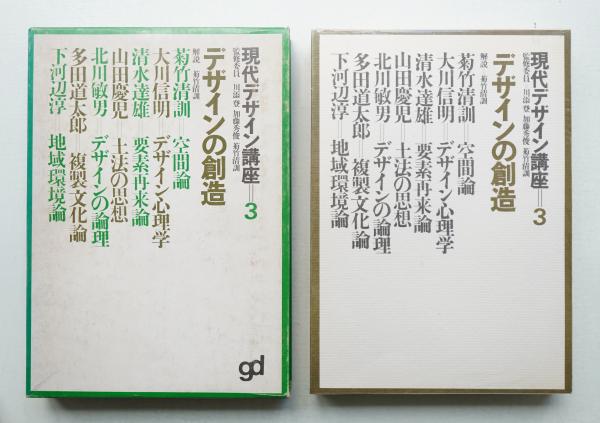 現代デザイン講座 3
監修委員 川添登 加藤秀俊 菊竹清訓
デザインの創造
解説 菊竹清訓
菊竹清訓 空間論
大川信明 デザイン心理学
清水達雄 要素再来論
山田慶児 土法の思想
北川敏男 デザインの論理
多田道太郎 複製文化論
下河辺淳 地域環境論
gd
現代デザイン講座 3
監修委員 川添登 加藤秀俊 菊竹清訓
デザインの創造
解説 菊竹清訓
菊竹清訓 空間論
大川信明 デザイン心理学
清水達雄 要素再来論
山田慶児 土法の思想
北川敏男 デザインの論理
多田道太郎 複製文化論
下河辺淳 地域環境論